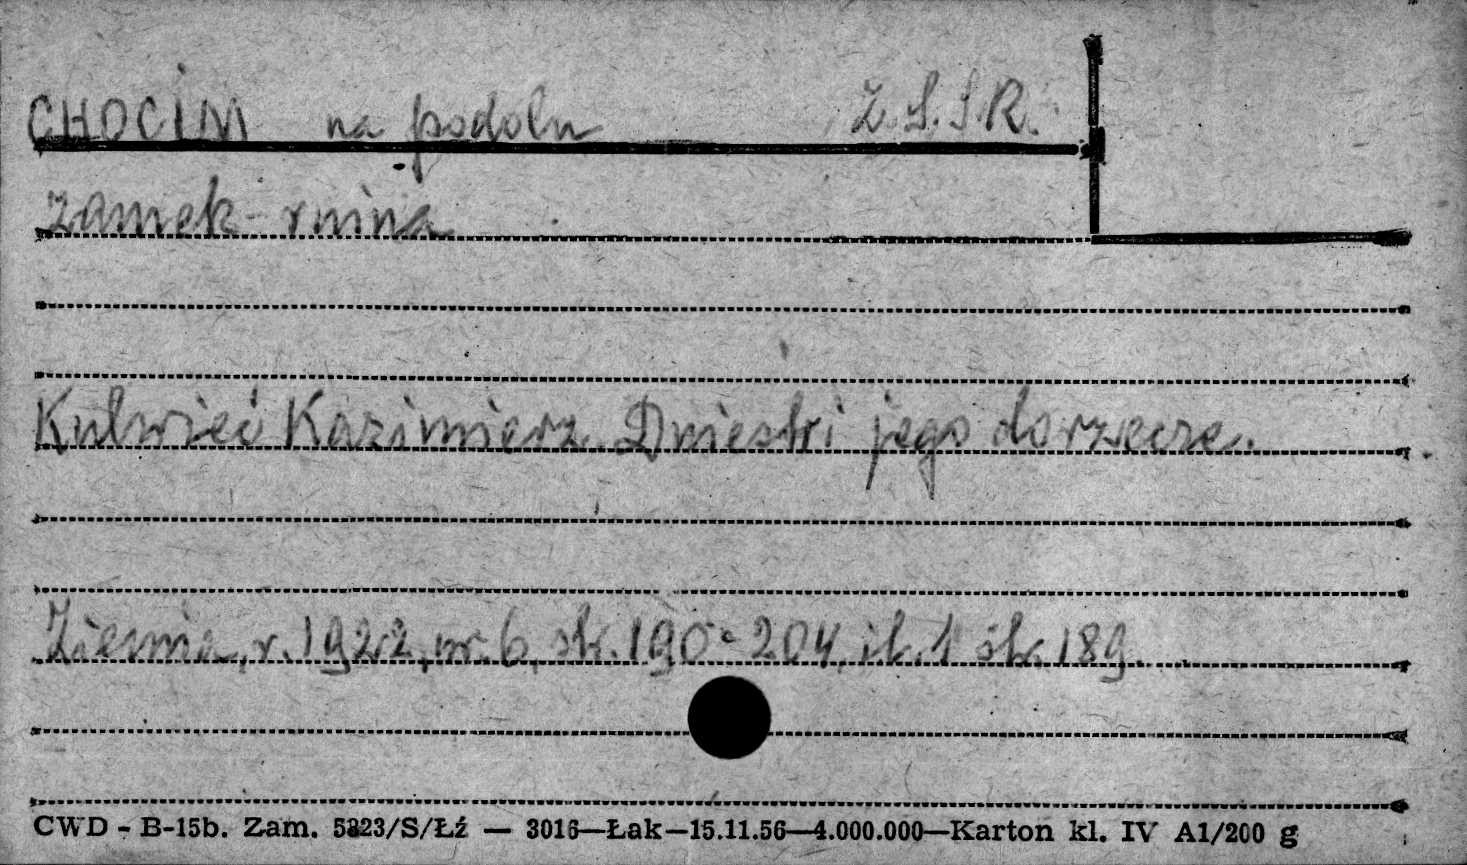 CHOCIM na podolu Z.S.S.R.
zamek - ruina
Kulwieć Kazimierz. Dniestr i jego dorzecze.
Ziemia, r. 1922, nr. 6, str. 190-204, il. 1 str. 189.
CWD - B-15b. Zam. 5823/S/Łź — 3016—Łak—15.11.56—4.000.000—Karton kl. IV A1/200 g